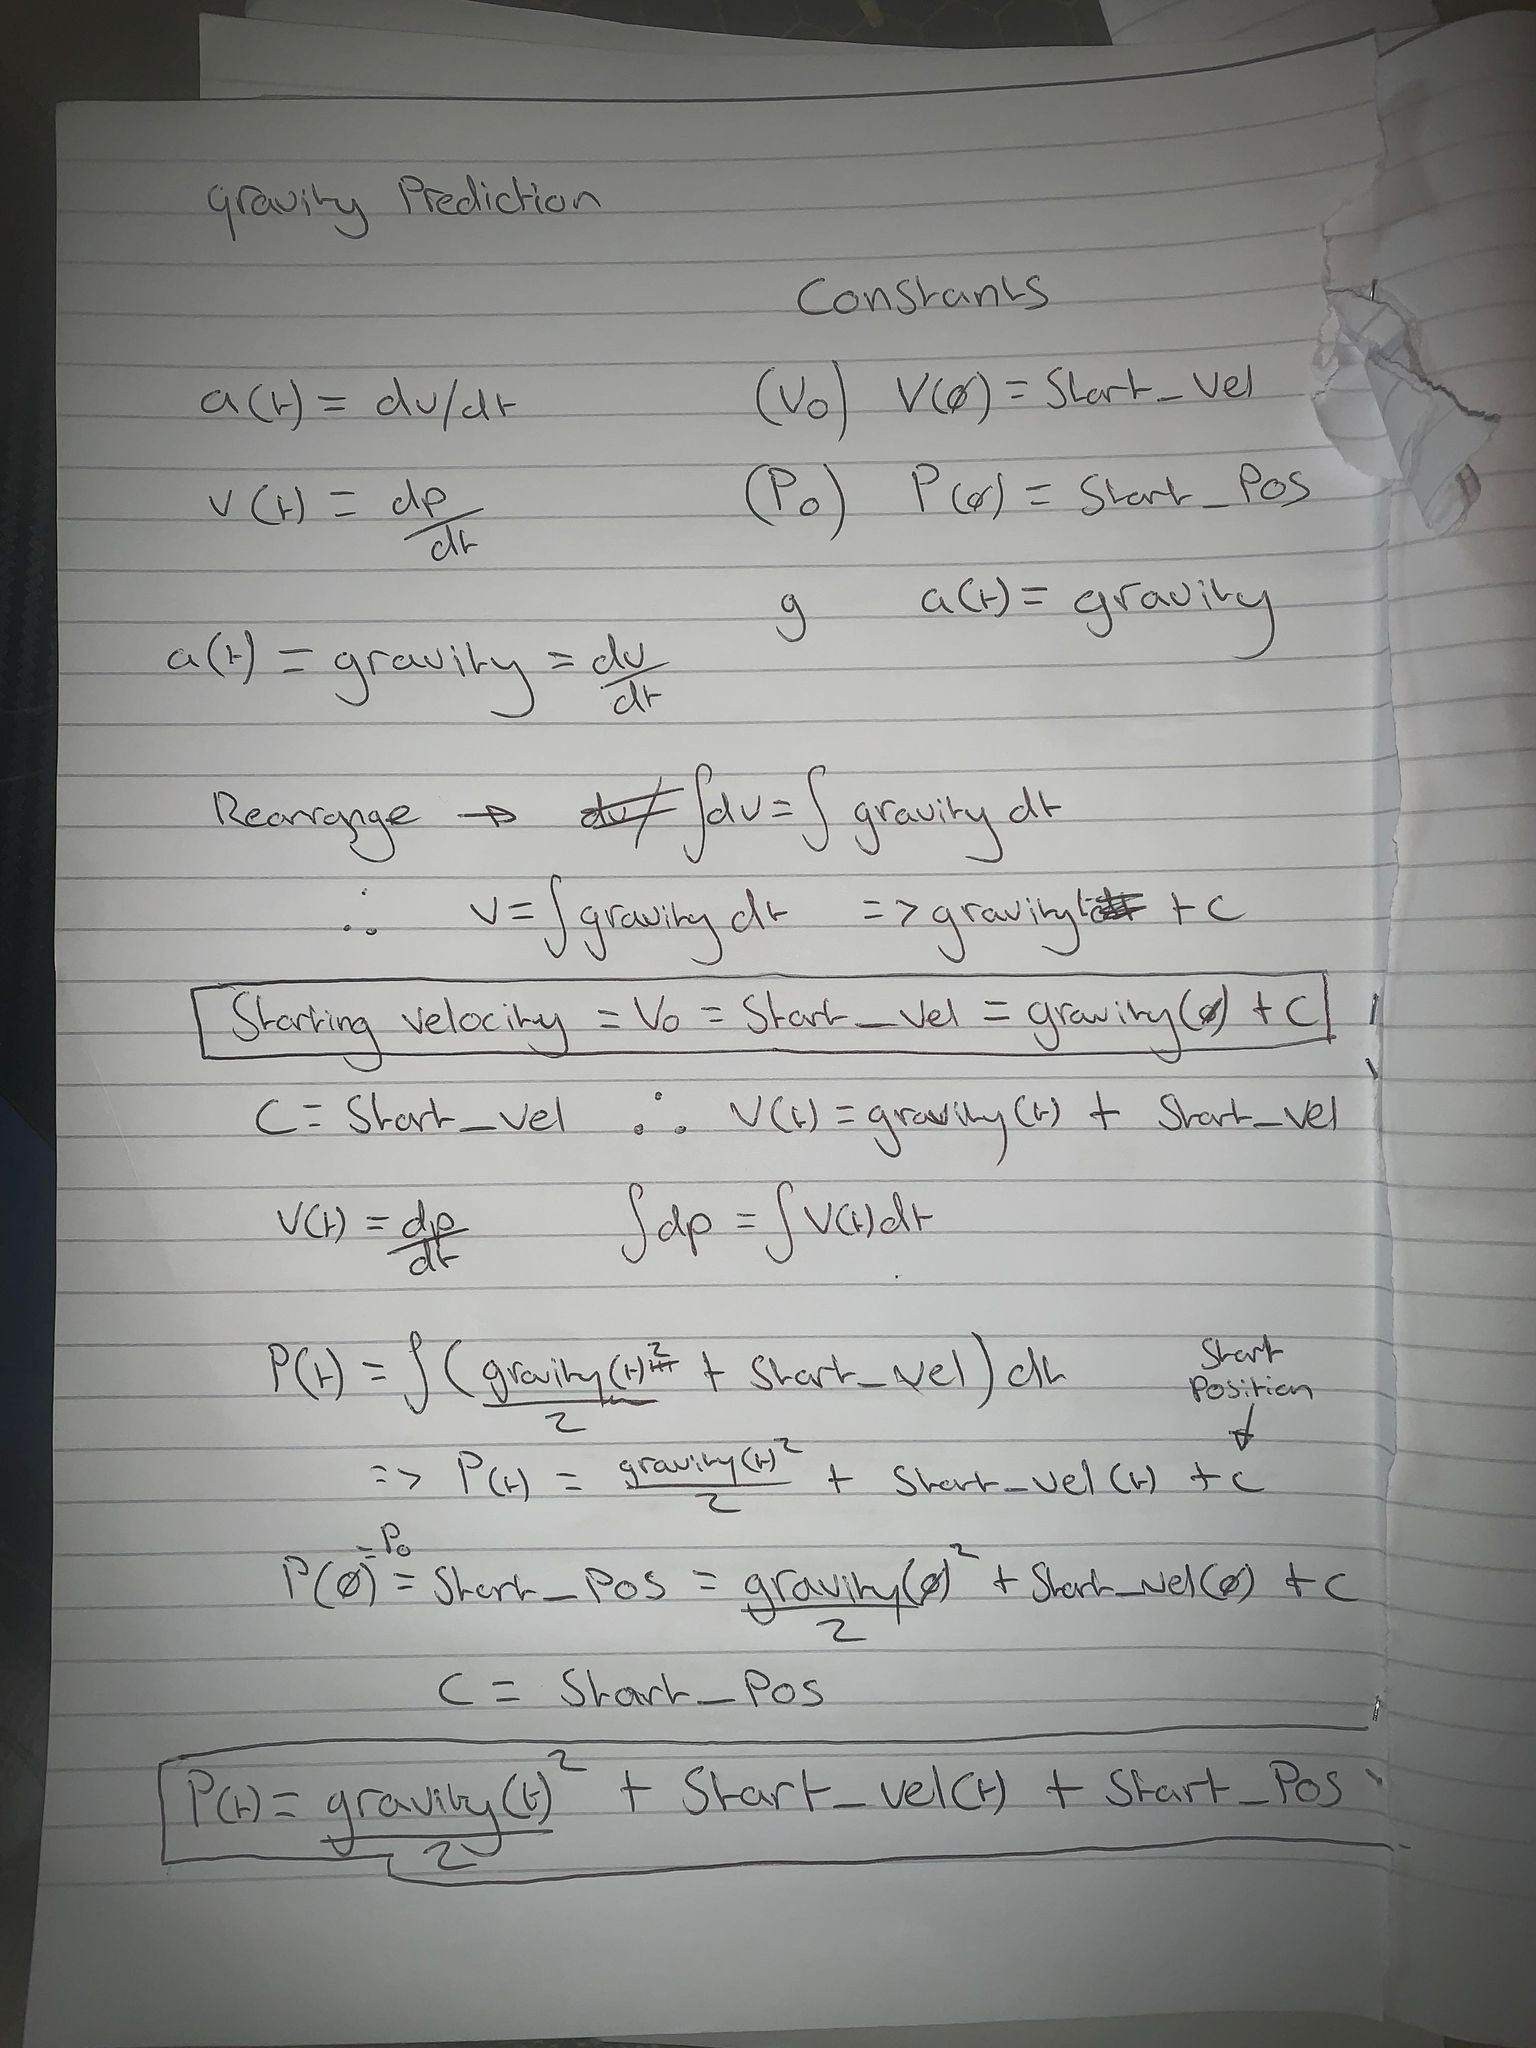 Gravity Prediction
Constants
a(t) = dv/dt
(V₀) V(0) = Start_Vel
v(t) = dp/dt
(P₀) P(0) = Start_Pos
g a(t) = gravity
a(t) = gravity = dv/dt
Rearrange → ∫dv = ∫ gravity dt
∴ v = ∫ gravity dt => gravity t + c
Starting velocity = V₀ = Start_vel = gravity(0) + c
C = Start_vel ∴ V(t) = gravity(t) + Start_vel
V(t) = dp/dt ∫dp = ∫V(t)dt
Start
Position
↓
P(t) = ∫(gravity(t)²/2 + Start_vel) dt
=> P(t) = gravity(t)²/2 + Start_vel(t) + c
P(0) = P₀ = Start_Pos = gravity(0)²/2 + Start_vel(0) + c
C = Start_Pos
P(t) = gravity(t)²/2 + Start_vel(t) + Start_Pos